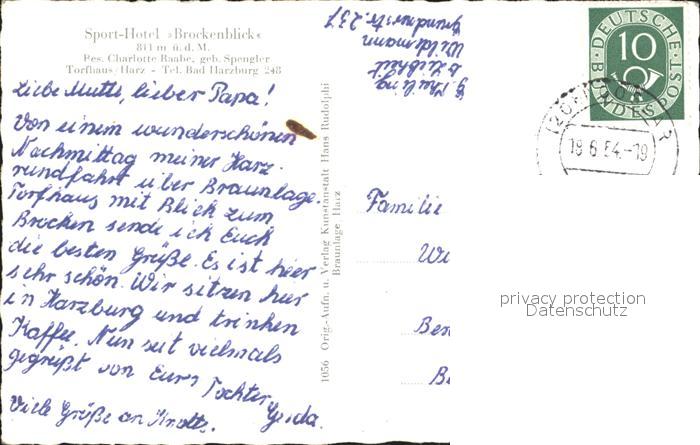 Sport-Hotel »Brockenblick«
811 m ü. d. M.
Bes. Charlotte Raabe, geb. Spengler
Torfhaus/Harz - Tel. Bad Harzburg 248
Liebe Mutti, lieber Papa!
Von einem wunderschönen
Nachmittag meiner Harz-
rundfahrt über Braunlage.
Torfhaus mit Blick zum
Brocken sende ich Euch
die besten Grüße. Es ist hier
sehr schön. Wir sitzen hier
in Harzburg und trinken
Kaffee. Nun seit vielmals
gegrüßt von Eurer Tochter
Gerda.
Viele Grüße an
1056 Orig.-Aufn. u. Verlag Kunstanstalt Hans Rudolphi
Braunlage Harz
DEUTSCHE BUNDESPOST
10
18.6.54.-19
Familie
Wi
Ber
Be
privacy protection
Datenschutz